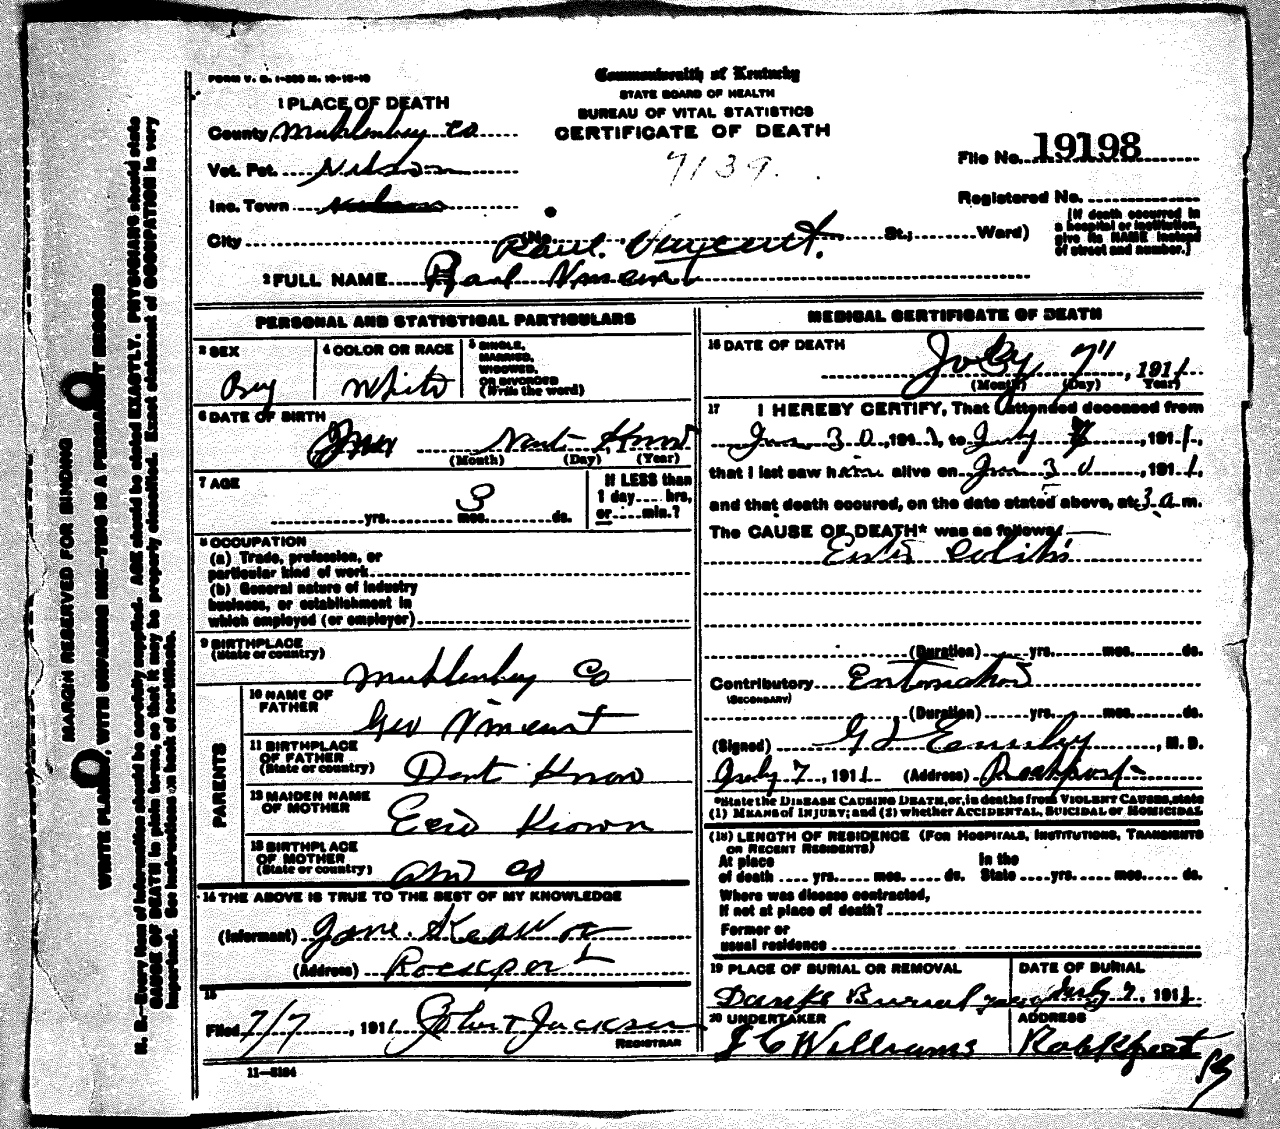 FORM V. S. 1-
Commonwealth of Kentucky
STATE BOARD OF HEALTH
BUREAU OF VITAL STATISTICS
CERTIFICATE OF DEATH
7139.
1 PLACE OF DEATH
County Muhlenberg Co
Vot. Pct. Nelson
Inc. Town
City
(No. St.; Ward)
File No. 19198
Registered No.
[If death occurred in
a hospital or institution,
give its NAME instead
of street and number.]
Paul. Vincent.
2 FULL NAME Paul Vincent
PERSONAL AND STATISTICAL PARTICULARS
3 SEX
Boy
4 COLOR OR RACE
White
5 SINGLE,
MARRIED,
WIDOWED,
OR DIVORCED
(Write the word)
6 DATE OF BIRTH
Know
(Month) (Day) (Year)
7 AGE
3
yrs. mos. ds.
If LESS than
1 day hrs,
or min.?
8 OCCUPATION
(a) Trade, profession, or
particular kind of work
(b) General nature of industry
business, or establishment in
which employed (or employer)
9 BIRTHPLACE
(State or country)
Muhlenberg Co
PARENTS
10 NAME OF
FATHER
Geo Vincent
11 BIRTHPLACE
OF FATHER
(State or country)
Dont Know
12 MAIDEN NAME
OF MOTHER
13 BIRTHPLACE
OF MOTHER
(State or country)
Co
14 THE ABOVE IS TRUE TO THE BEST OF MY KNOWLEDGE
(Informant) Jane.
(Address) Rockport
15
Filed 7/7, 1911 Jackson
REGISTRAR
11—5184
MEDICAL CERTIFICATE OF DEATH
16 DATE OF DEATH
July 7", 1911
(Month) (Day) Year)
17 I HEREBY CERTIFY, That I attended deceased from
30, 1911, to July, 1911,
that I last saw him alive on 30, 1911,
and that death occured, on the date stated above, at 3 a m.
The CAUSE OF DEATH* was as follows:
Colitis
(Duration) yrs. mos. ds.
Contributory
(SECONDARY)
(Duration) yrs. mos. ds.
(Signed), M. D.
July 7, 1911 (Address) Rockport
*State the DISEASE CAUSING DEATH, or, in deaths from VIOLENT CAUSES, state
(1) MEANS of INJURY; and (2) whether ACCIDENTAL, SUICIDAL or HOMICIDAL
(18) LENGTH OF RESIDENCE (FOR HOSPITALS, INSTITUTIONS, TRANSIENTS
OR RECENT RESIDENTS)
At place In the
of death yrs. mos. ds. State yrs. mos. ds.
Where was disease contracted,
If not at place of death?
Former or
usual residence
19 PLACE OF BURIAL OR REMOVAL
Burial
DATE OF BURIAL
July 7, 1911
20 UNDERTAKER
J C Williams
ADDRESS
Rockport
MARGIN RESERVED FOR BINDING
WRITE PLAINLY, WITH UNFADING INK—THIS IS A PERMANENT RECORD
N. B.—Every item of information should be carefully supplied. AGE should be stated EXACTLY. PHYSICIANS should state
CAUSE OF DEATH in plain terms, so that it may be properly classified. Exact statement of OCCUPATION is very
important. See instructions on back of certificate.